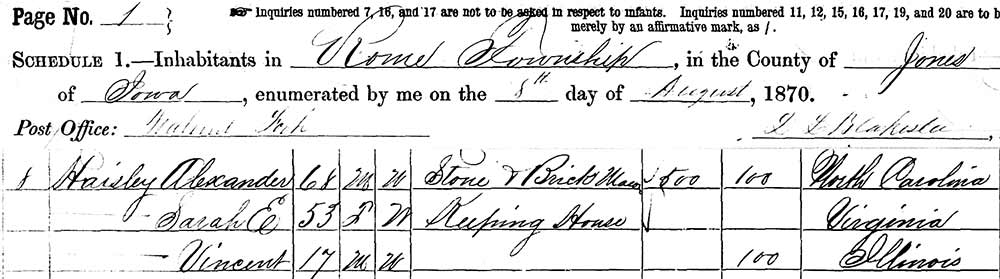 Page No. 1
☞ Inquiries numbered 7, 16, and 17 are not to be asked in respect to infants. Inquiries numbered 11, 12, 15, 16, 17, 19, and 20 are to b
merely by an affirmative mark, as /.
SCHEDULE 1.—Inhabitants in Rome Township, in the County of Jones
of Iowa, enumerated by me on the 8th day of August, 1870.
Post Office: Walnut Fork L L Blakeslee,
8 Haisley Alexander 68 M W Stone & Brick Mason 500 100 North Carolina
— Sarah E 53 F W Keeping House Virginia
— Vincent 17 M W 100 Illinois